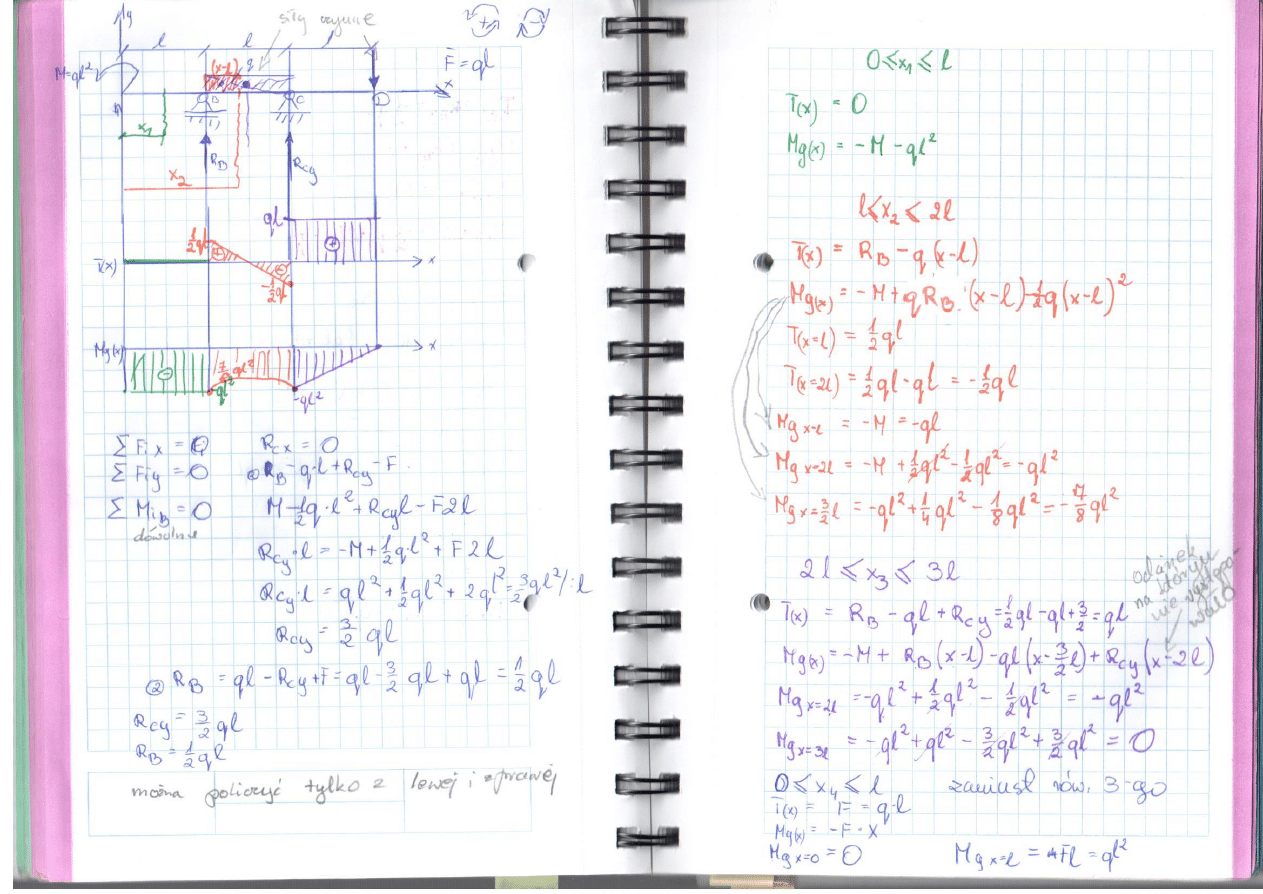 y
siły czynne
+ -
l l l
M=ql²
(x-l) q
F = ql
x
B C D
x₁
R_B R_cy
x₂
ql
½ql
⊕ ⊖ ⊕
T(x) x
-½ql
Mg(x) x
⊖ ⅞ql²
-ql² -ql²
ΣFix = 0 Rcx = 0
ΣFiy = 0 R_B - q·l + Rcy - F
ΣMi_B = 0 M - ½q·l² + Rcy l - F2l
dowolnie
Rcy·l = -M + ½q·l² + F2l
Rcy·l = ql² + ½ql² + 2ql² = 3/2 ql² /:l
Rcy = 3/2 ql
② R_B = ql - Rcy + F = ql - 3/2 ql + ql = ½ql
Rcy = 3/2 ql
R_B = ½ql
można policzyć tylko z lewej i z prawej
0 ≤ x₁ ≤ l
T(x) = 0
Mg(x) = -M - ql²
l ≤ x₂ ≤ 2l
T(x) = R_B - q(x-l)
Mg(x) = -M + q R_B·(x-l) - ½q(x-l)²
T(x=l) = ½ql
T(x=2l) = ½ql - ql = -½ql
Mg x=l = -M = -ql
Mg x=2l = -M + ½ql² - ½ql² = -ql²
Mg x=3/2 l = -ql² + ¼ql² - ⅛ql² = -⅞ql²
2l ≤ x₃ ≤ 3l
odcinek
na którym
nie występo-
wało
T(x) = R_B - ql + Rcy = ½ql - ql + 3/2 = ql
Mg(x) = -M + R_B(x-l) - ql(x - 3/2 l) + Rcy(x-2l)
Mg x=2l = -ql² + ½ql² - ½ql² = -ql²
Mg x=3l = -ql² + ql² - 3/2 ql² + 3/2 ql² = 0
0 ≤ x₄ ≤ l zamiast rów. 3-go
T(x) = F = q·l
Mg(x) = -F·x
Mg x=0 = 0 Mg x=l = -Fl = ql²